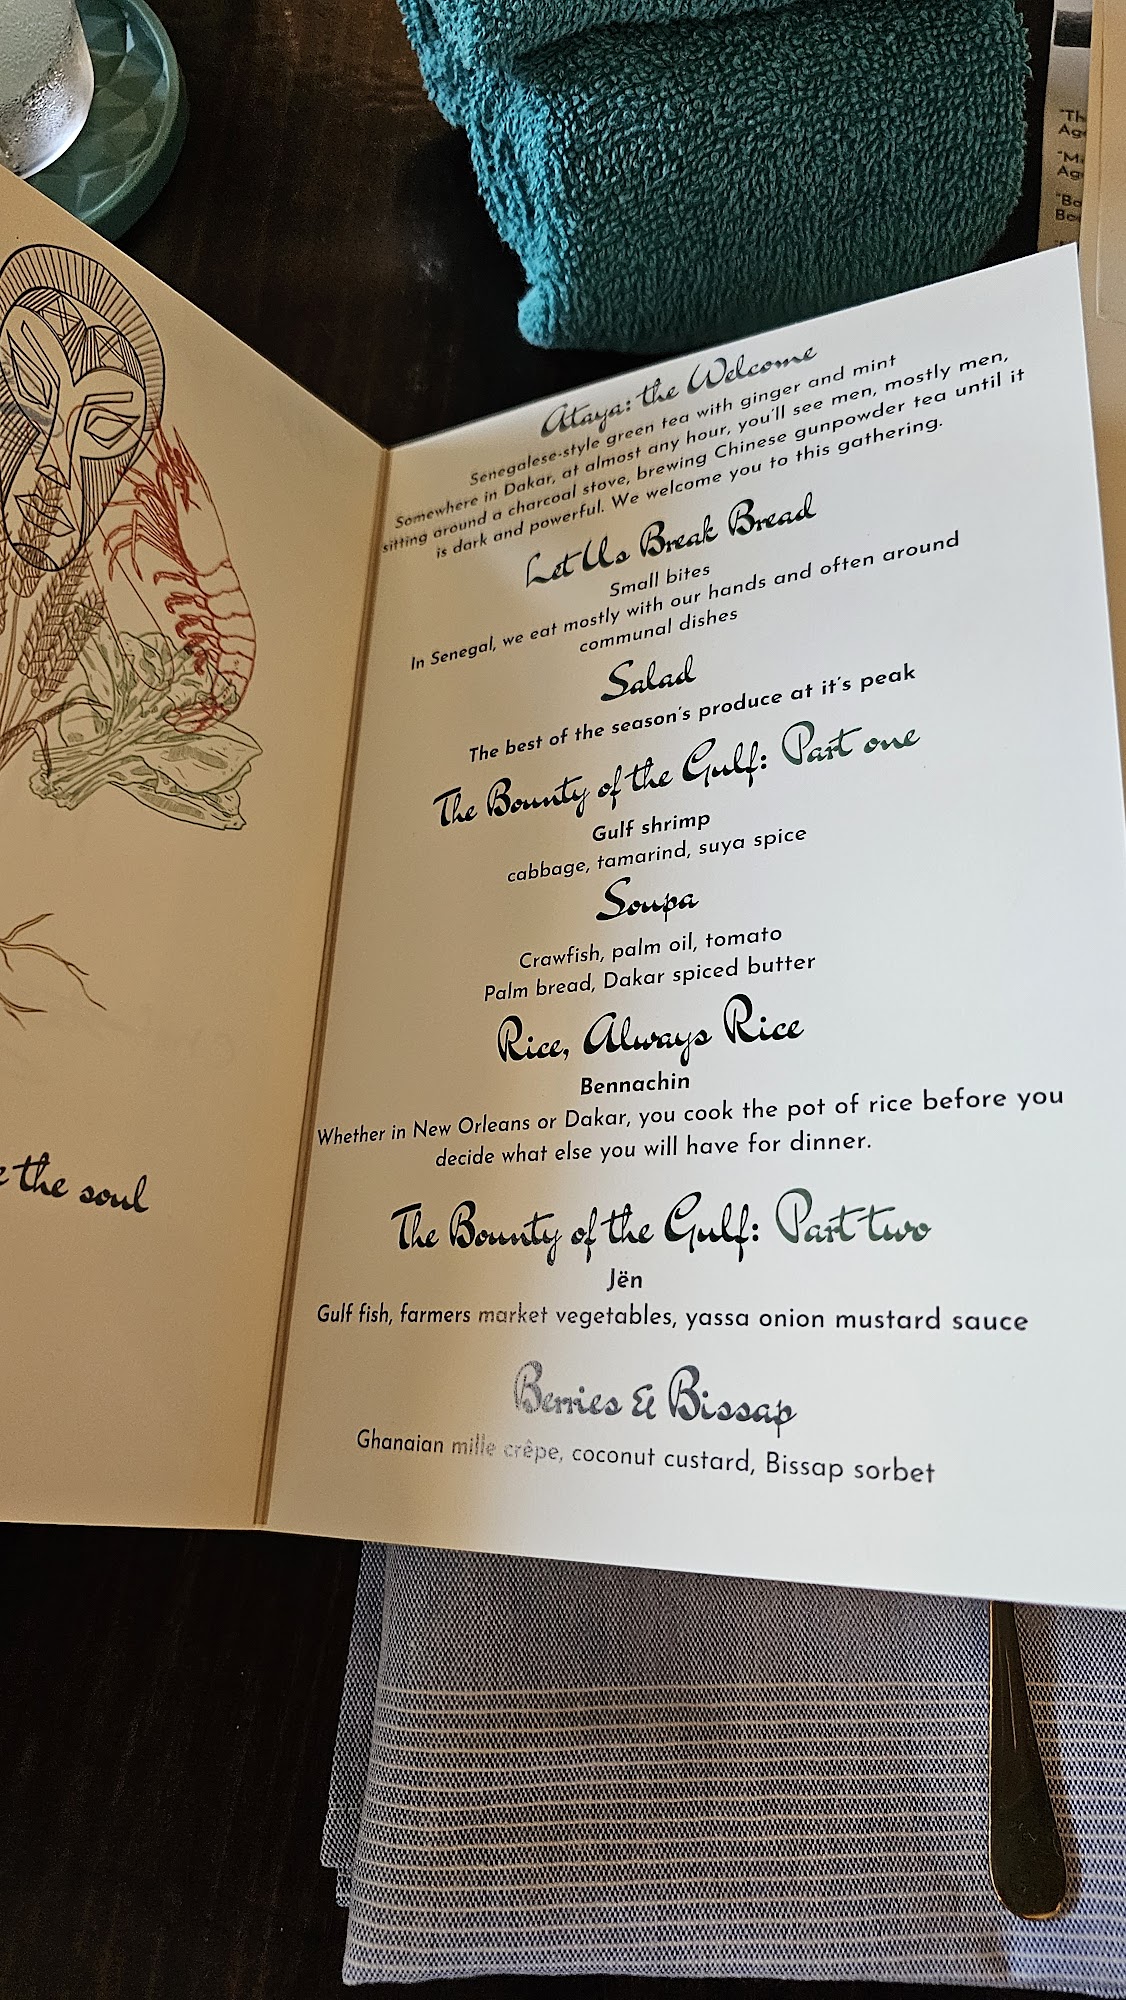 Ataya: the Welcome
Senegalese-style green tea with ginger and mint
Somewhere in Dakar, at almost any hour, you'll see men, mostly men,
sitting around a charcoal stove, brewing Chinese gunpowder tea until it
is dark and powerful. We welcome you to this gathering.
Let Us Break Bread
Small bites
In Senegal, we eat mostly with our hands and often around
communal dishes
Salad
The best of the season's produce at it's peak
The Bounty of the Gulf: Part one
Gulf shrimp
cabbage, tamarind, suya spice
Soupa
Crawfish, palm oil, tomato
Palm bread, Dakar spiced butter
Rice, Always Rice
Bennachin
Whether in New Orleans or Dakar, you cook the pot of rice before you
decide what else you will have for dinner.
The Bounty of the Gulf: Part two
Jën
Gulf fish, farmers market vegetables, yassa onion mustard sauce
Berries & Bissap
Ghanaian mille crêpe, coconut custard, Bissap sorbet
the soul